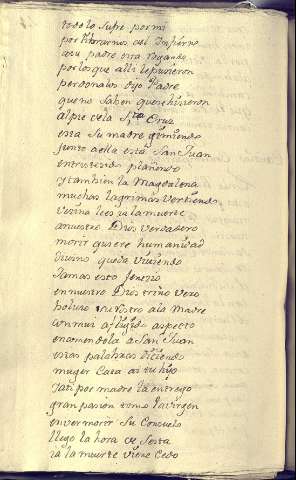 todo lo sufre por mi
por librarnos del Infierno
a su padre esta rogando
por los que alli le pusieron
perdonalos oyo Padre
que no saben que se hizieron
al pie de la Sta Cruz
esta su madre gimiendo
junto a ella esta San Juan
entristesido plañendo
y tambien la Magdalena
muchas lagrimas vertiendo
vezina les es la muerte
a nuestro Dios verdadero
morir quiere humanidad
divino queda viviendo
Jamas esto fenesio
en nuestro Dios trino vero
bolvio su rostro a la Madre
con muy afligido aspecto
encomendola a San Juan
estas palabras diciendo
muger cata ai tu hijo
Jai por madre la entrego
gran pasion tomo la virgen
en ver morir su Consuelo
llego la hora de Sesta
ia la muerte viene Cedo